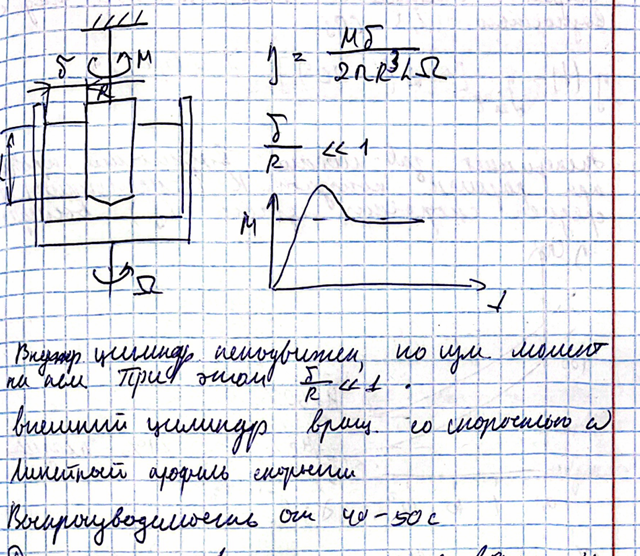 δ C M
R
L
Ω
η = Mδ / 2πR³LΩ
δ/R ≪ 1
M
t
Внутр цилиндр неподвижен, но изм. момент
на нём При этом δ/R ≪ 1 .
внешний цилиндр вращ. со скоростью ω
Линейный профиль скорости
Воспроизводимость от 40-50 с